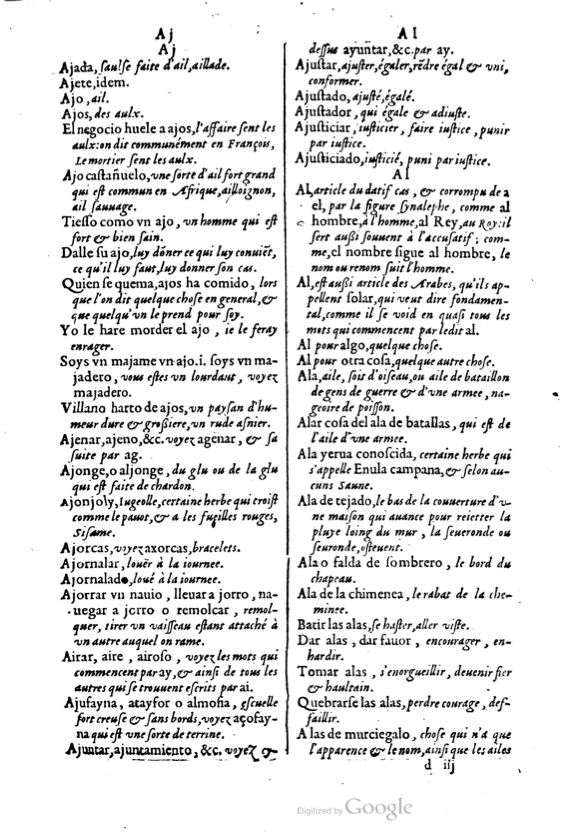 Aj
Aj
Ajada, sausse faite d'ail, aillade.
Ajete, idem.
Ajo, ail.
Ajos, des aulx.
El negocio huele a ajos, l'affaire sent les
aulx: on dit communément en François,
Le mortier sent les aulx.
Ajo castañuelo, vne sorte d'ail fort grand
qui est commun en Afrique, ailloignon,
ail sauuage.
Tiesso como vn ajo, vn homme qui est
fort & bien sain.
Dalle su ajo, luy dōner ce qui luy conuiēt,
ce qu'il luy faut, luy donner son cas.
Quien se quema, ajos ha comido, lors
que l'on dit quelque chose en general, &
que quelqu'vn le prend pour soy.
Yo le hare morder el ajo, ie le feray
enrager.
Soys vn majame vn ajo. i. soys vn ma-
jadero, vous estes vn lourdaut, voyez
majadero.
Villano harto de ajos, vn paysan d'hu-
meur dure & grossiere, vn rude asnier.
Ajenar, ajeno, &c. voyez agenar, & sa
suite par ag.
Ajonge, o aljonge, du glu ou de la glu
qui est faite de chardon.
Ajonjoly, Iugeolle, certaine herbe qui croist
comme le pauot, & a les fueilles rouges,
Sisame.
Ajorcas, voyez axorcas, bracelets.
Ajornalar, louër à la iournee.
Ajornalado, loué à la iournee.
Ajorrar vn nauio, lleuar a jorro, na-
uegar a jorro o remolcar, remol-
quer, tirer vn vaisseau estant attaché à
vn autre auquel on rame.
Airar, aire, airoso, voyez les mots qui
commencent par ay, & ainsi de tous les
autres qui se trouuent escrits par ai.
Ajufayna, atayfor o almofia, escuelle
fort creuse & sans bords, voyez açofay-
na qui est vne sorte de terrine.
Ajuntar, ajuntamiento, &c. voyez &
Al
dessus ayuntar, &c. par ay.
Ajustar, ajuster, égaler, rēdre égal & vni,
conformer.
Ajustado, ajusté, égalé.
Ajustador, qui égale & adiuste.
Ajusticiar, iusticier, faire iustice, punir
par iustice.
Ajusticiado, iusticié, puni par iustice.
Al
Al, article du datif cas, & corrompu de a
el, par la figure synalephe, comme al
hombre, à l'homme, al Rey, au Roy: il
sert aussi souuent à l'accusatif; com-
me, el nombre sigue al hombre, le
nom ou renom suit l'homme.
Al, est aussi article des Arabes, qu'ils ap-
pellent solar, qui veut dire fondamen-
tal, comme il se void en quasi tous les
mots qui commencent par ledit al.
Al pour algo, quelque chose.
Al pour otra cosa, quelque autre chose.
Ala, aile, soit d'oiseau, ou aile de bataillon
de gens de guerre & d'vne armee, na-
geoire de poisson.
Alar cosa del ala de batallas, qui est de
l'aile d'vne armee.
Ala yerua conoscida, certaine herbe qui
s'appelle Enula campana, & selon au-
cuns Saune.
Ala de tejado, le bas de la couuerture d'v-
ne maison qui auance pour reietter la
pluye loing du mur, la seueronde ou
seuronde, osteuent.
Ala o falda de sombrero, le bord du
chapeau.
Ala de la chimenea, le rabat de la che-
minee.
Batir las alas, se haster, aller viste.
Dar alas, dar fauor, encourager, en-
hardir.
Tomar alas, s'enorgueillir, deuenir fier
& haultain.
Quebrarse las alas, perdre courage, def-
faillir.
A las de murciegalo, chose qui n'a que
l'apparence & le nom, ainsi que les ailes
d iij
Digitized by Google